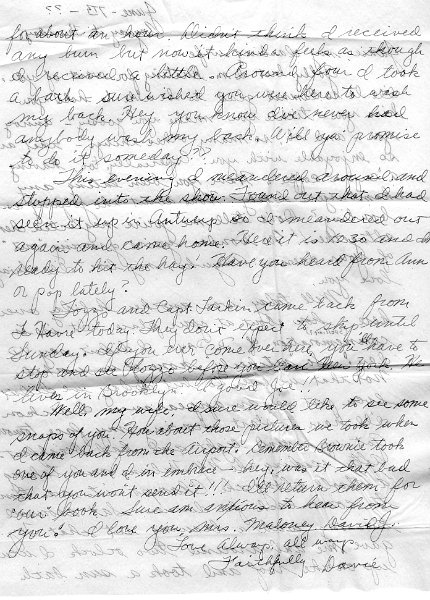 June - 75 - ??
for about an hour. Didn't think I received
any burn but now it kinda feels as though
I received a little. Around four I took
a bath, sure wished you were here to wash
my back. Hey, you know I've never had
anybody wash my back. Will you promise
to do it someday?
This evening I meandered around and
stopped into the show. Found out that I had
seen it up in Antwerp so I meandered out
again and came home. Here it is 12:30 and I'm
ready to hit the hay. Have you heard from Ann
or pop lately?
and Capt. Larkin came back from
Le Havre today. They don't expect to ship until
Sunday. If you ever come over here, you'll have to
stop and see before you leave New York. He
lives in Brooklyn. A good Joe.
Well, my wife, I sure would like to see some
snaps of you. How about those pictures we took when
I came back from the Airport. Remember Brownie took
one of you and I in embrace - hey, was it that bad
that you won't send it!!! I'll return them for
"our" book. Sure am anxious to hear from
you. I love you, Mrs. Maloney Davie,
Love always, all ways
Faithfully
Davie